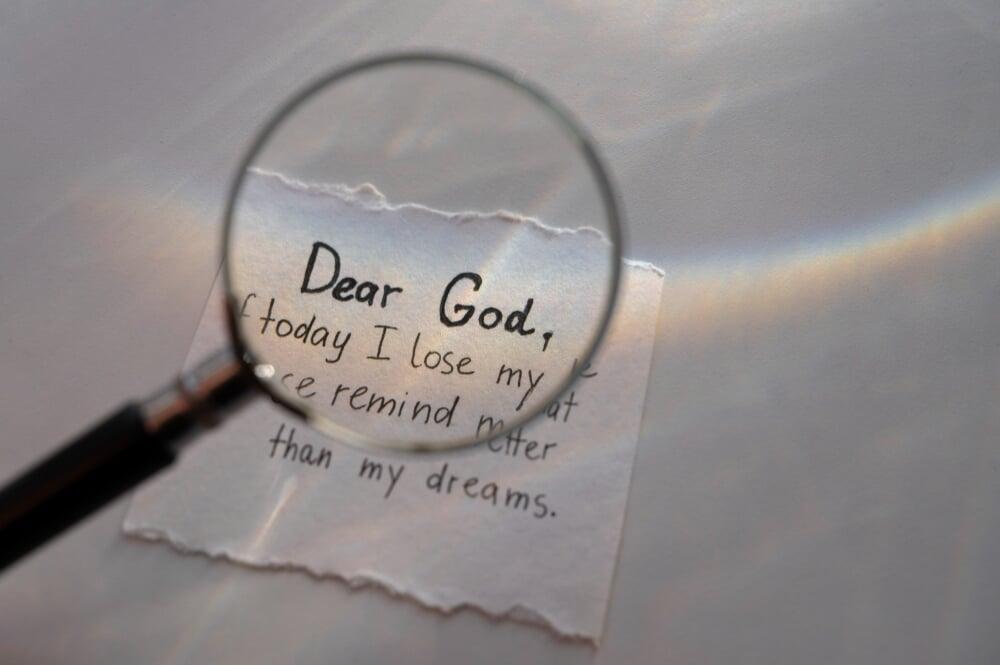 Dear God,
f today I lose my
ce remind m at
etter
than my dreams.